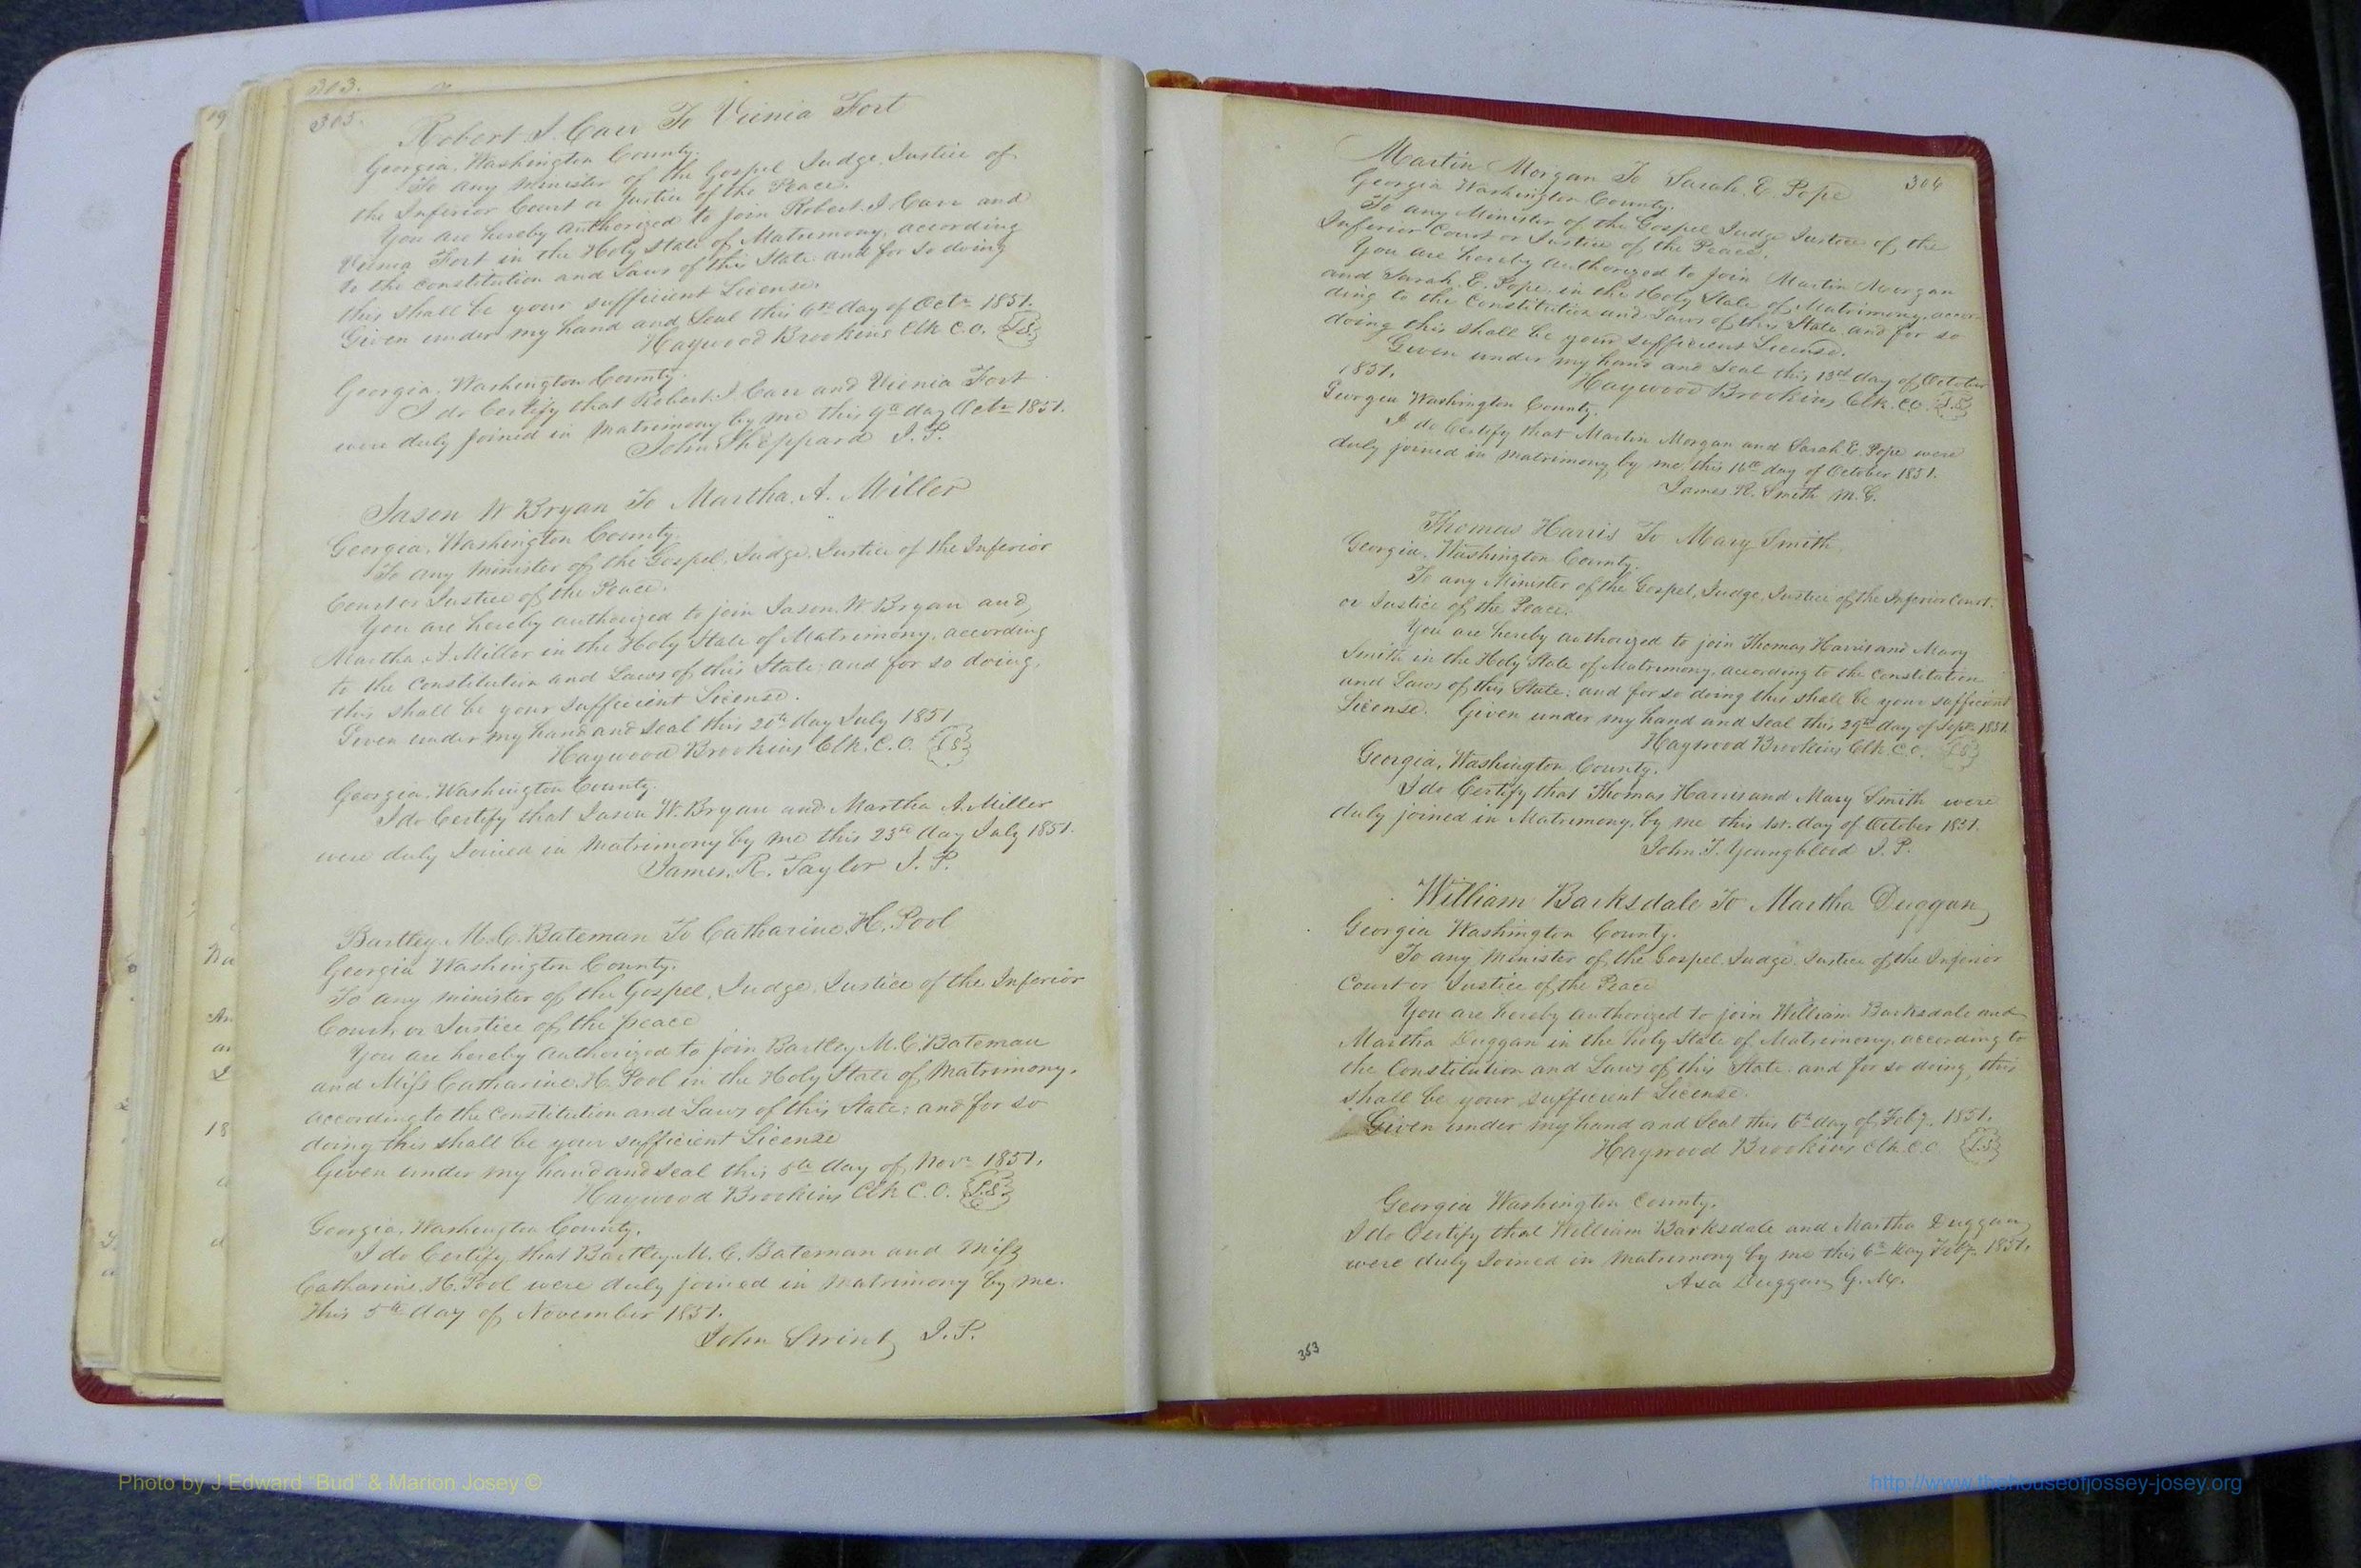 303.
305.
Robert I. Carr To Vienia Fort
Georgia, Washington County.
To any Minister of the Gospel Judge, Justice of
the Inferior Court or Justice of the Peace.
You are hereby authorized to join Robert I. Carr and
Vienia Fort in the Holy State of Matrimony, according
to the Constitution and Laws of this State and for so doing
this shall be your sufficient License.
Given under my hand and Seal this 6th day of Octr 1851.
Haywood Brookins Clk C.O. L.S.
Georgia, Washington County.
I do Certify that Robert I. Carr and Vienia Fort
were duly joined in Matrimony by me this 9th day Octr 1851.
John Sheppard J.P.
Jason W Bryan To Martha A. Miller
Georgia, Washington County.
To any Minister of the Gospel, Judge, Justice of the Inferior
Court or Justice of the Peace.
You are hereby authorized to join Jason W Bryan and
Martha A. Miller in the Holy State of Matrimony, according
to the Constitution and Laws of this State; and for so doing,
this shall be your sufficient License.
Given under my hand and Seal this 20th day July 1851
Haywood Brookins Clk. C.O. L.S.
Georgia, Washington County.
I do Certify that Jason W. Bryan and Martha A. Miller
were duly Joined in Matrimony by me this 23rd day July 1851.
James. R. Taylor J.P.
Bartley. M. C. Bateman To Catharine H. Pool
Georgia Washington County.
To any minister of the Gospel, Judge, Justice of the Inferior
Court or Justice of the peace
You are hereby authorized to join Bartley M. C. Bateman
and Miss Catharine H. Pool in the Holy State of Matrimony,
according to the Constitution and Laws of this State; and for so
doing this shall be your sufficient License
Given under my hand and Seal this 5th day of Novr 1851.
Haywood Brookins Clk C.O. L.S.
Georgia, Washington County.
I do Certify that Bartley M. C. Bateman and Miss
Catharine H. Pool were duly joined in Matrimony by me.
this 5th day of November 1851.
John J.P.
306
Martin Morgan To Sarah. E. Pope
Georgia Washington County.
To any Minister of the Gospel Judge Justice of the
Inferior Court or Justice of the Peace.
You are hereby authorized to join Martin Morgan
and Sarah. E. Pope, in the Holy State of Matrimony, accor-
ding to the Constitution and Laws of this State and for so
doing this shall be your sufficient License.
Given under my hand and Seal this 13th day of October
1851. Haywood Brookins Clk. C.O. L.S.
Georgia Washington County.
I do Certify that Martin Morgan and Sarah E. Pope were
duly joined in Matrimony by me, this 16th day of October 1851.
James R. Smith M.G.
Thomas Harris To Mary Smith
Georgia, Washington County.
To any Minister of the Gospel, Judge, Justice of the Inferior Court.
or Justice of the Peace.
You are hereby authorized to join Thomas Harris and Mary
Smith in the Holy State of Matrimony, according to the Constitution
and Laws of this State; and for so doing this shall be your sufficient
License. Given under my hand and Seal this 29th day of Sept 1851.
Haywood Brookins Clk C.O. L.S.
Georgia, Washington County.
I do Certify that Thomas Harris and Mary Smith were
duly joined in Matrimony, by me this 1st. day of October 1851.
John. T. Youngblood J.P.
William Barksdale To Martha Duggan
Georgia Washington County.
To any Minister of the Gospel, Judge, Justice of the Inferior
Court or Justice of the Peace
You are hereby authorized to join William Barksdale and
Martha Duggan in the Holy State of Matrimony, according to
the Constitution and Laws of this State; and for so doing, this
shall be your sufficient License.
Given under my hand and Seal this 6th day of Feby. 1851.
Haywood Brookins Clk. C.O. L.S.
Georgia Washington County.
I do Certify that William Barksdale and Martha Duggan
were duly Joined in Matrimony by me this 6th day Feby. 1851.
Asa Duggan
353
Photo by J Edward "Bud" & Marion Josey ©
http://www.thehouseofjossey-josey.org